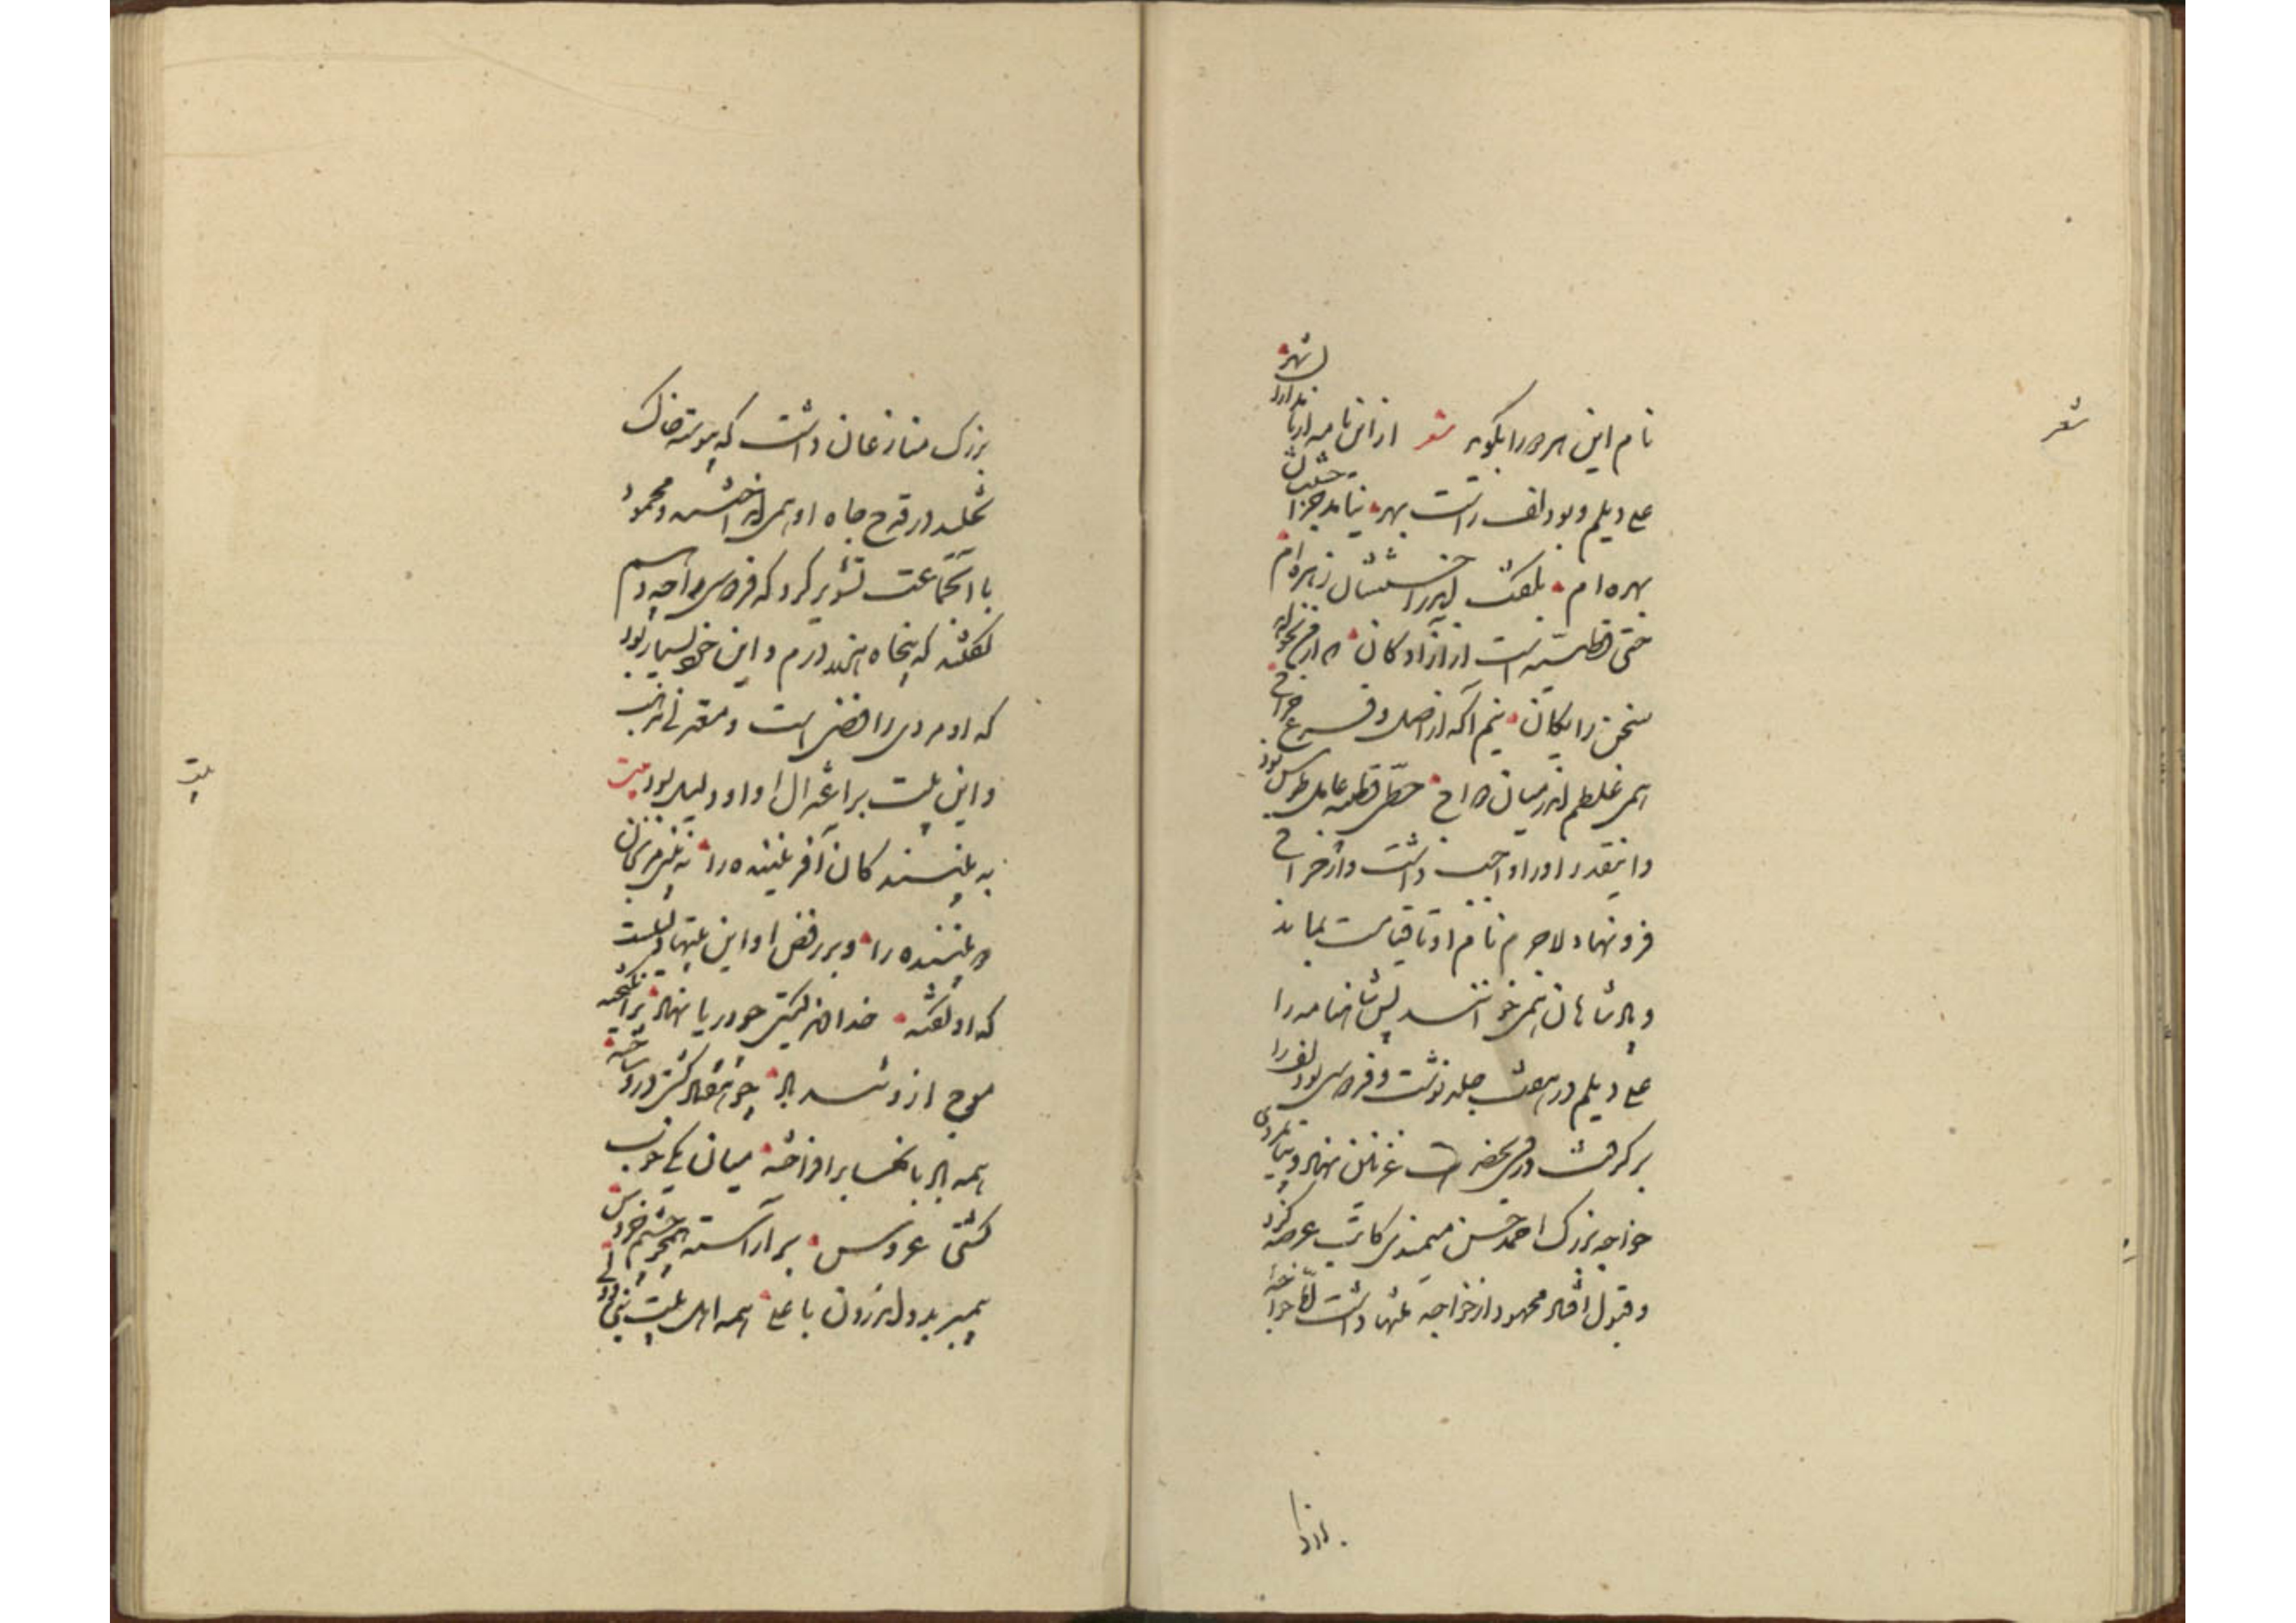 شعر
نام این هر دو را بگوید شعر از این نامه از نامداران شهر
علی دیلم و بودلف راست بهر نیامد جز احسنتشان
بهره‌ام بکفت اندر احسنتشان زهره‌ام
حیی قطیبه است از آزادکان که از من نخواهد
سخن رایکان نیم آکه از اصل و فرع خراج
همی غلطم اندر میان دواج حیی قطیبه عامل طوس بود
و اینقدر او را واجب داشت و از خراج
فرو نهاد لاجرم نام او تا قیامت بماند
و پادشاهان همی خوانند پس شاهنامه را
علی دیلم در هفت جلد نوشت و فردوسی بودلف را
برکرفت و روی بحضرت غزنین نهاد و بپایمردی
خواجه بزرک احمد حسن میمندی کاتب عرضه کرد
و قبول افتاد محمود از خواجه منتها داشت اما خواجه
بزرک منازعان داشت که پیوسته خاک
تخلیط در قدح جاه او همی انداختند و محمود
با آنجماعت تدبیر کرد که فردوسی را چه دهیم
کفتند که پنجاه هزار درم و این خود بسیار بود
که او مردی رافضی است و معتزلی مذهب
و این بیت بر اعتزال او دلیل بود بیت
بیت
به بینندکان آفریننده را نه بینی مرنجان
دو بیننده را و بر رفض او این بیتها دلیلست
که او کفته خداوند کیتی چو دریا نهاد برانکیخته
موج ازو تند باد چو هفتاد کشتی درو ساخته
همه بادبانها برافراخته میانه یکی خوب
کشتی عروس برآراسته همچو چشم خروس
پیمبر بدو اندرون با علی همه اهل بیت نبی و وصی
بزرک